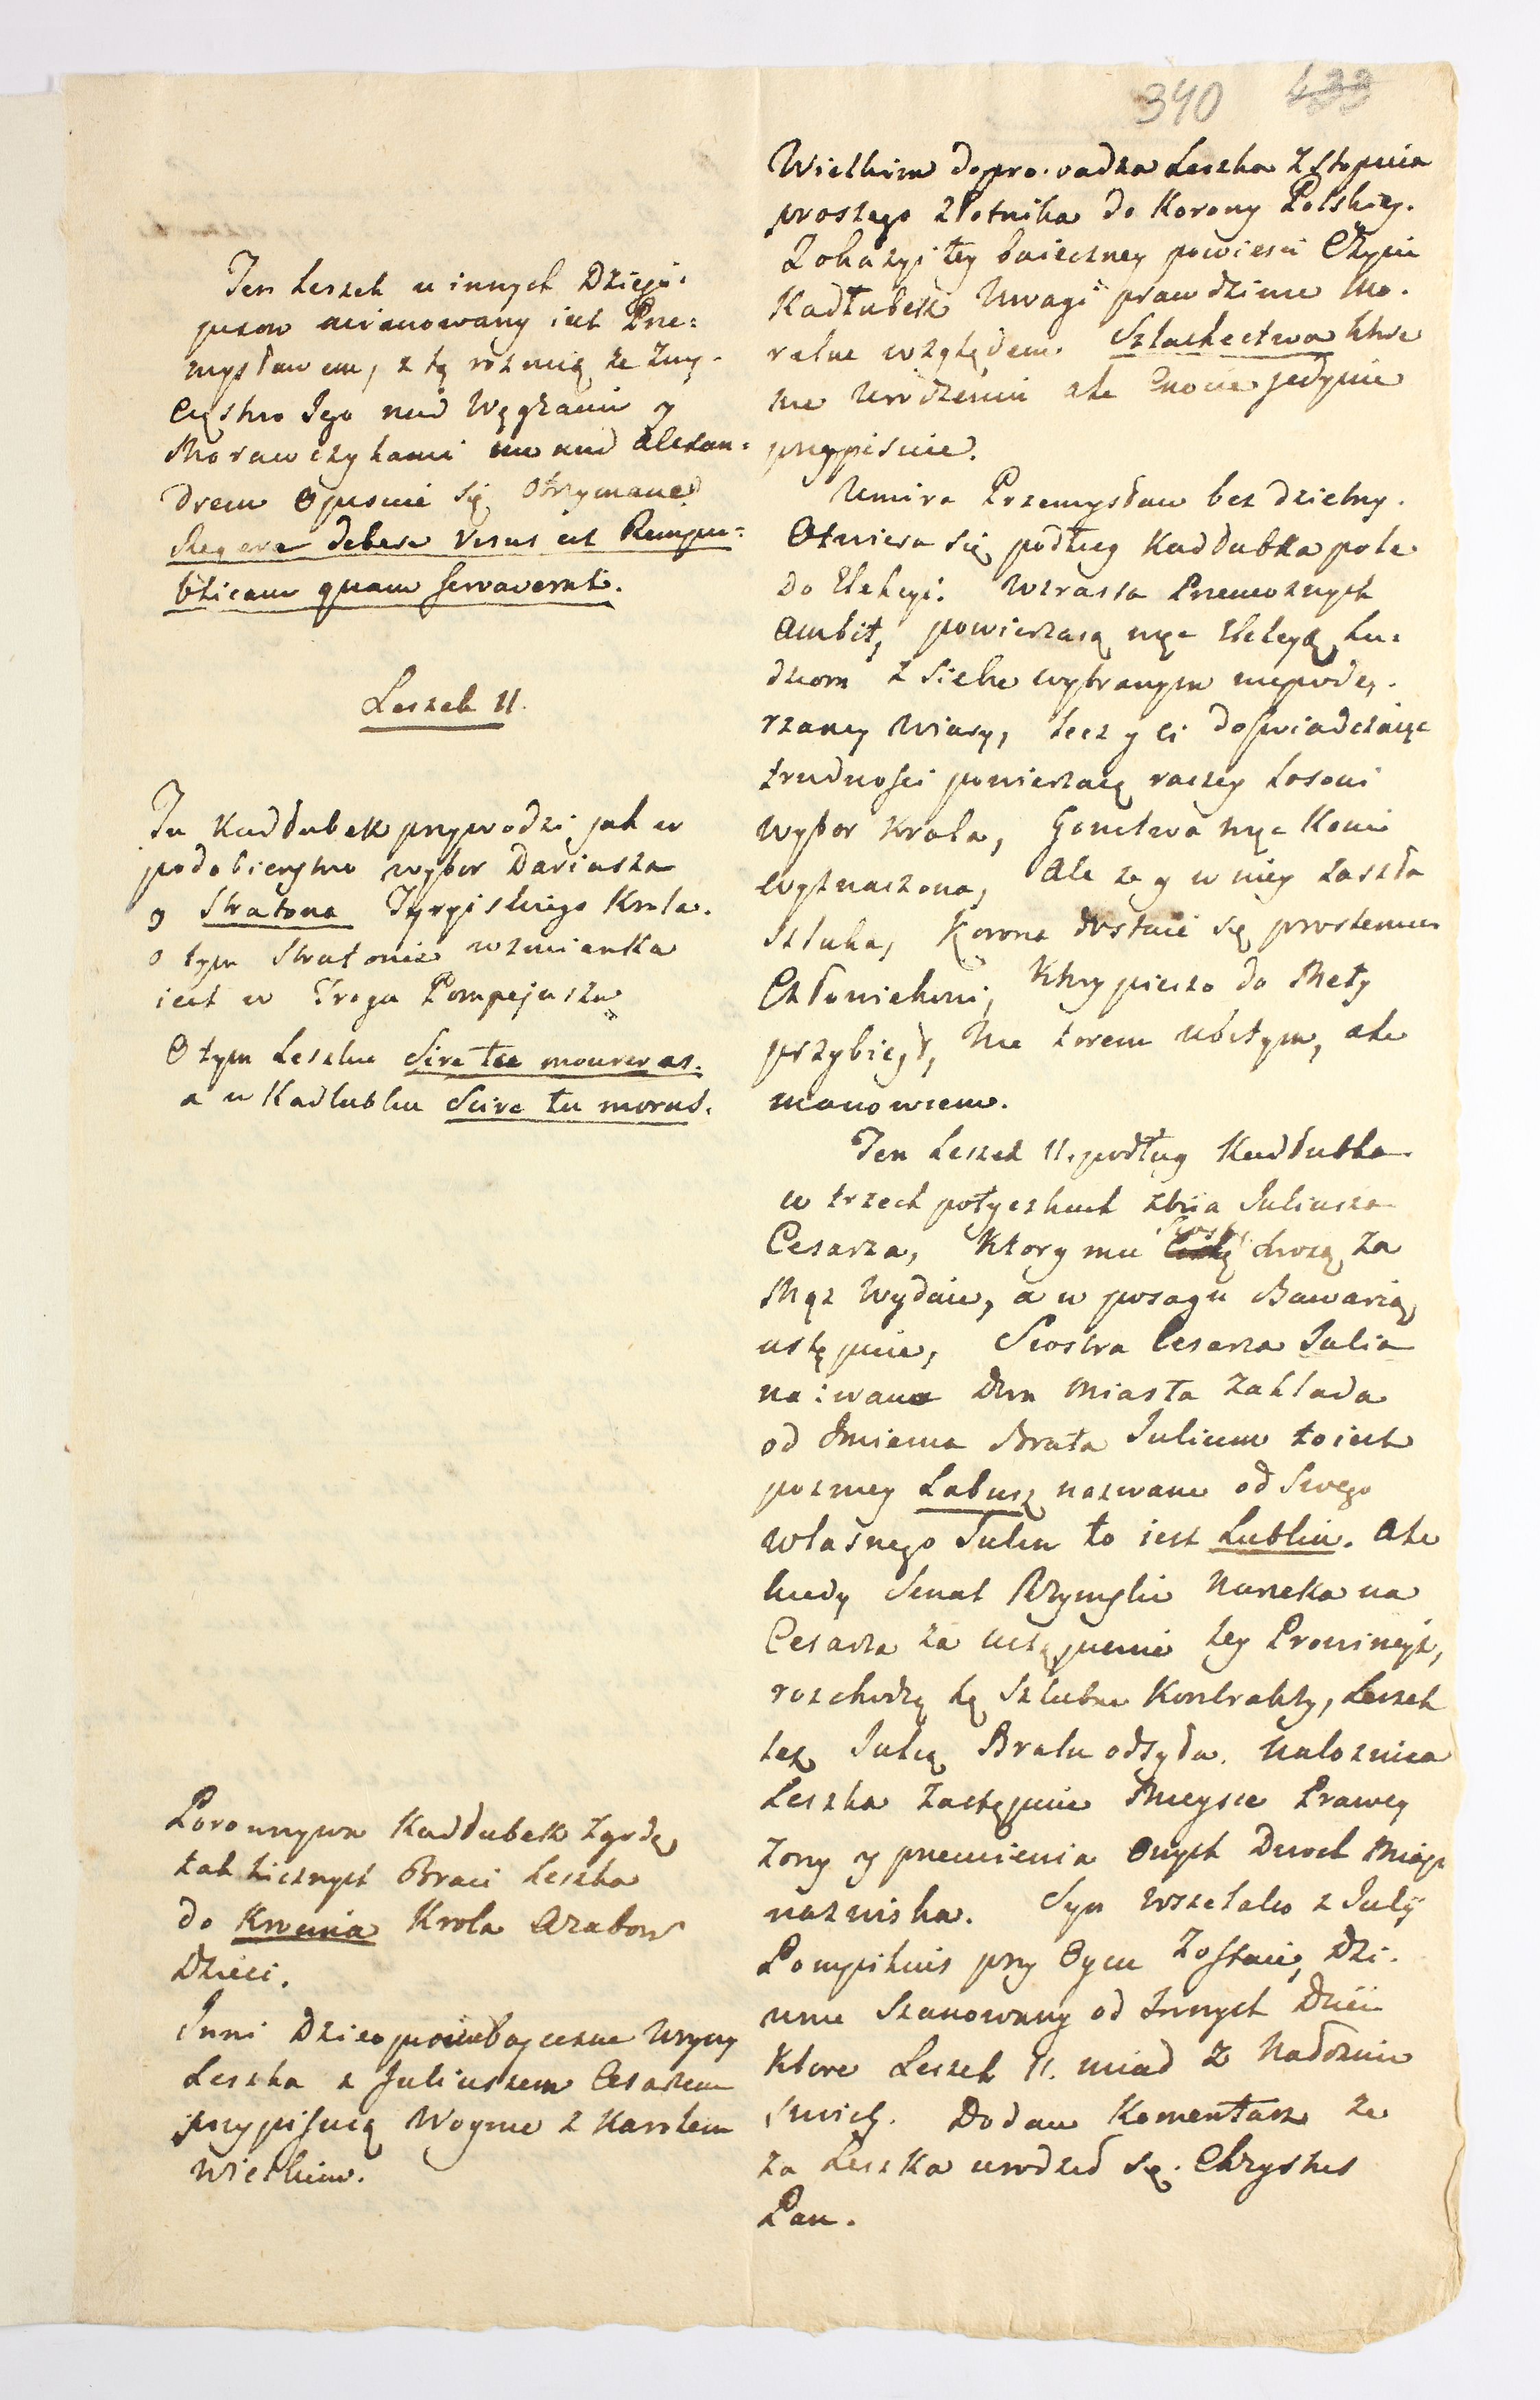 340 433
Ten Leszek u innych Dzieio-
pisow mianowany iest Prze=
mysławem, z tą rożnicą że Zwy-
cięstwo Jego nad Węgrami y
Morawczykami nie nad Alexan=
drem Opisuie się otrzymane
Regere debere visus est Rempu=
blicam quam servaverat.
Leszek II.
Tu Kadłubek przywodzi jak w
podobieństwo wybor Dariusza
y Stratona Tyryiskiego Krola.
o tym Stratonie wzmianka
iest w Trogu Pompejuszu
O tym Leszku Sire tu moureras.
a w Kadłubku Scire tu moras.
Porownywa Kadłubek Zgodę
tak licznych Braci Leszka
do Krwinia Krola Arabow
Dzieci.
Inni Dzieiopisowie boje Woyny
Leszka z Juliuszem Cesarzem
przypisuią Woynie z Karolem
Wielkim.
Wielkim doprowadza Leszka z Stopnia
prostego złotnika do Korony Polskiey.
Z okazyi tey baieczney powieści Czyni
Kadłubek Uwagi prawdziwe Mo-
ralne względem Szlachectwa ktore
nie Urodzeniu ale Cnocie jedynie
przypisuie.
Umira Przemysław bezdzietny.
Otwiera się podług Kadłubka pole
do Elekcyi. Wzrasta Przemożnych
Ambit, powierzaią więc Elekcyą Lu-
dziom z Siebie wybranym niepodey-
rzaney Wiary, lecz y ci doświadczaiąc
trudności powierzaią raczey Losowi
Wybor Krola, Gonitwa więc Koni
wyznaczona, Ale że y w niey zaszła
Sztuka, Korona dostaie się prostemu
Człowiekowi, Ktory pieszo do Mety
przybiegł, Nie torem ubitym, ale
manowcem.
Ten Leszek II. podług Kadłubka
w trzech potyczkach zbiia Juliusza
Cesarza, Ktory mu Siostrę swoią za
Mąż Wydaie, a w posagu Bawarią
ustępuie, Siostra Cesarza Julia
nazwana Dwa Miasta Zakłada
od Imienia Brata Julium to iest
pozniey Labusz nazwane od Swego
własnego Julin to iest Lublin. Ale
kiedy Senat Rzymski Narzeka na
Cesarza za ustąpienie tey Prowincyi,
rozchodzą się Szlubne Kontrakty, Leszek
też Julią Bratu odsyła. Nałoznica
Leszka Zastępuie Mieysce Prawey
Zony y przemienia onych Dwoch Miast
nazwiska. Syn wszelako z Julij
Pompiliusz przy Oycu Zostaie, Dzi-
wnie Szanowany od Innych Dzieci
Ktore Leszek II. miał z Nałoznic
swich. Dodaie Komentarz że
za Leszka urodził się Chrystus
Pan.